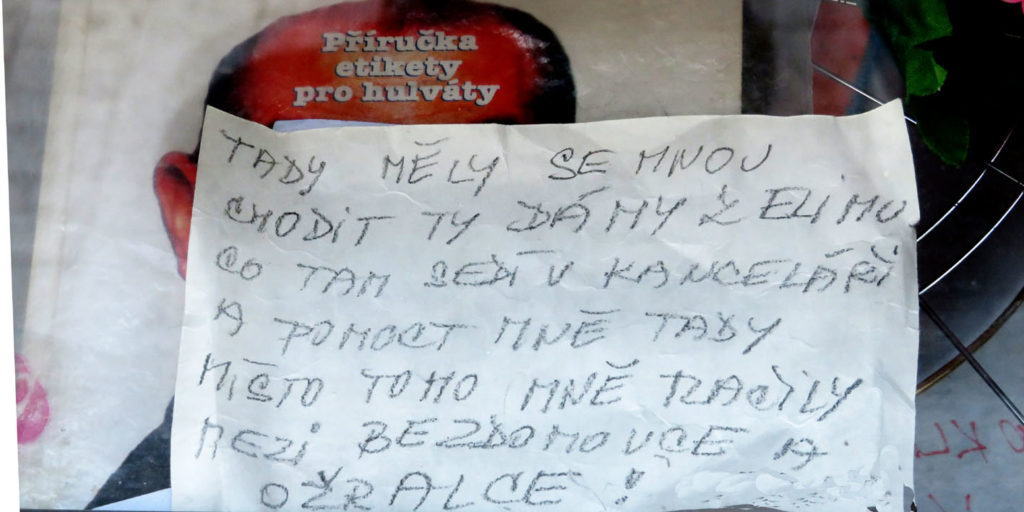 Příručka
etikety
pro hulváty
TADY MĚLY SE MNOU
CHODIT TY DÁMY Z ELIMU
CO TAM SEDÍ V KANCELÁŘÍ
A POMOCT MNĚ TADY
MÍSTO TOHO MNĚ TLAČILY
MEZI BEZDOMOVCE A
OŽRALCE !